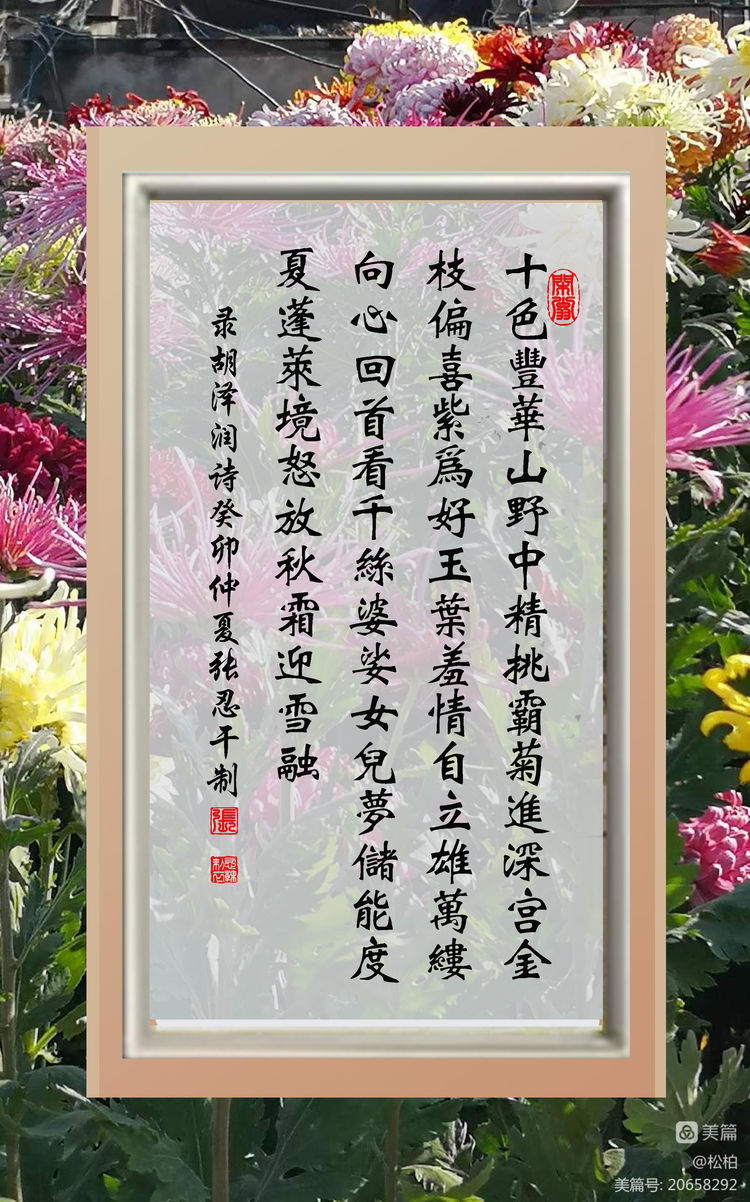 十色豐華山野中精挑霸菊進深宫金
枝偏喜紫為好玉葉羞情自立雄萬縷
向心回首看千絲婆娑女兒夢儲能度
夏蓬萊境怒放秋霜迎雪融
录胡泽润诗癸卯仲夏张忍干制
張
美篇
@松柏
美篇号: 20658292